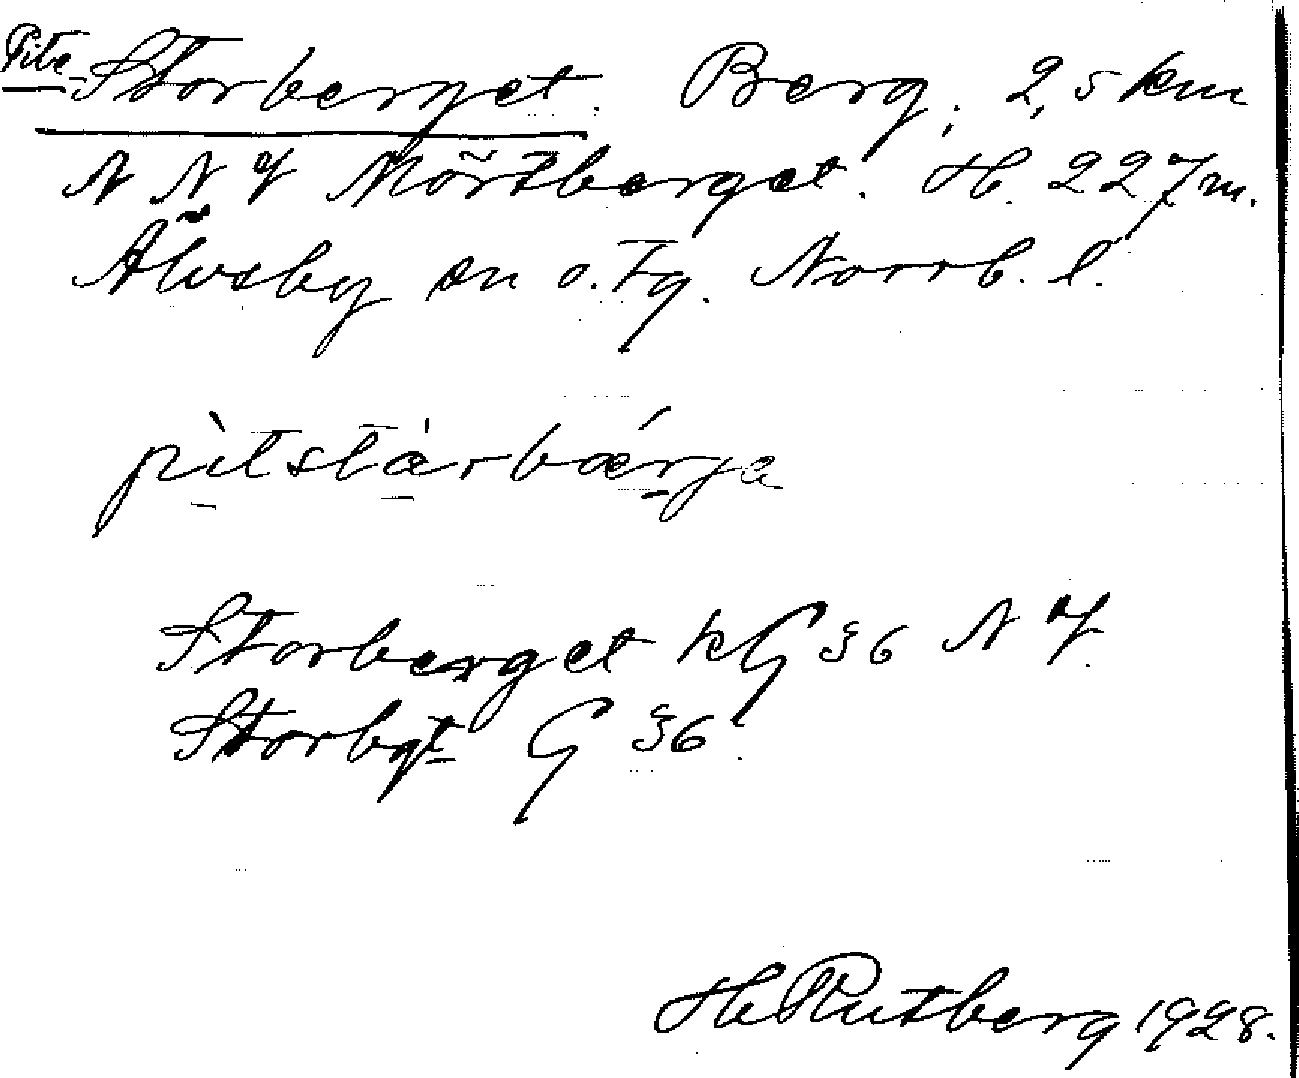 Pite-Storberget. Berg, 2,5 km
N N V Mörtberget. H. 227 m.
Älvsby sn o. tg. Norrb. l.
pìtstárbǽrja
Storberget kG §6 N V.
Storbgt G §6.
H Rutberg 1928.